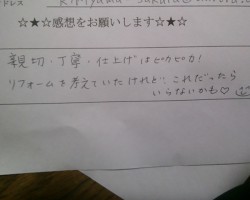 ドレス
☆★☆感想をお願いします☆★☆
親切・丁寧・仕上げはピカピカ!
リフォームを考えていたけれど、これだったら
いらないかも♡